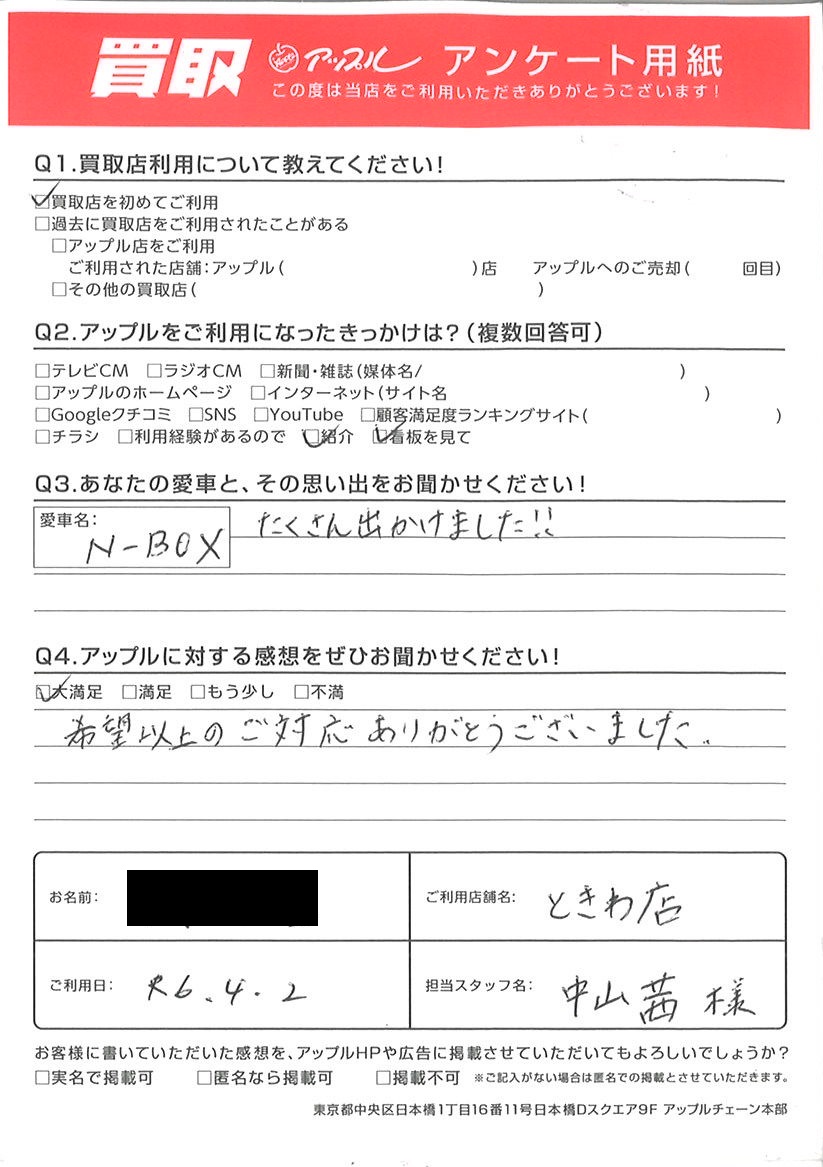 買取 アップル アンケート用紙
この度は当店をご利用いただきありがとうございます!
Q1.買取店利用について教えてください!
☑買取店を初めてご利用
□過去に買取店をご利用されたことがある
□アップル店をご利用
ご利用された店舗:アップル( )店 アップルへのご売却( 回目)
□その他の買取店( )
Q2.アップルをご利用になったきっかけは?(複数回答可)
□テレビCM □ラジオCM □新聞・雑誌(媒体名/ )
□アップルのホームページ □インターネット(サイト名 )
□Googleクチコミ □SNS □YouTube □顧客満足度ランキングサイト( )
□チラシ □利用経験があるので ☑紹介 ☑看板を見て
Q3.あなたの愛車と、その思い出をお聞かせください!
愛車名: N-BOX
たくさん出かけました!!
Q4.アップルに対する感想をぜひお聞かせください!
☑大満足 □満足 □もう少し □不満
希望以上のご対応ありがとうございました。
お名前:
ご利用店舗名: ときわ店
ご利用日: R6.4.2
担当スタッフ名: 中山茜様
お客様に書いていただいた感想を、アップルHPや広告に掲載させていただいてもよろしいでしょうか?
□実名で掲載可 □匿名なら掲載可 □掲載不可 ※ご記入がない場合は匿名での掲載とさせていただきます。
東京都中央区日本橋1丁目16番11号日本橋Dスクエア9F アップルチェーン本部